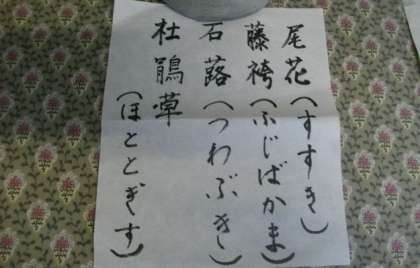 尾花(すすき)
藤袴(ふじばかま)
石蕗(つわぶき)
杜鵑草(ほととぎす)